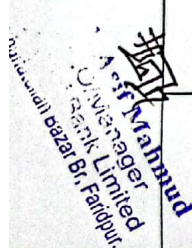 Asif Mahmud
Manager
Bank Limited
Bazar Br, Faridpur